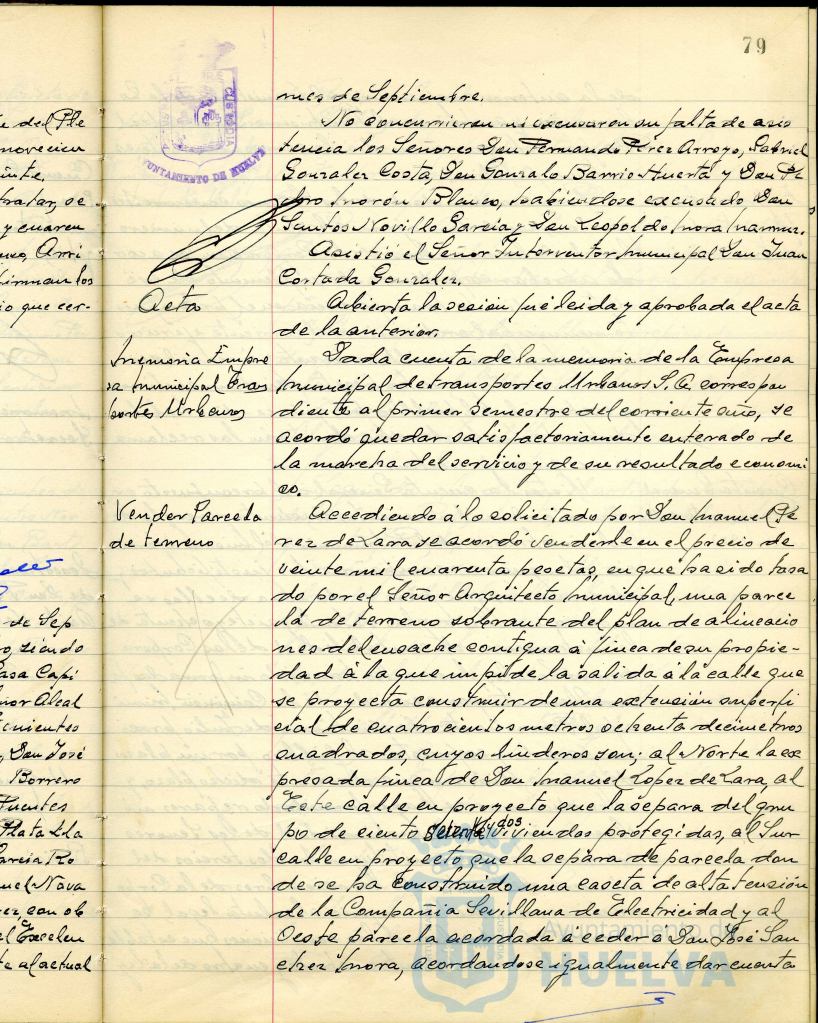 79
mes de Septiembre.
No concurrieron ni excusaron su falta de asis
tencia los Señores Don Fernando Pérez Arroyo, Gabriel
Gonzalez Costa, Don Gonzalo Barrio Huerta y Don Pe
dro Morón Blanco, habiendose excusado Don
Santos Novillo García y Don Leopoldo Mora
Asistió el Señor Interventor Municipal Don Juan
Cortada Gonzalez.
Acta
Abierta la sesion fué leida y aprobada el acta
de la anterior.
Memoria Empre
sa Municipal Tras
portes Urbanos
Dada cuenta de la memoria de la Empresa
Municipal de transportes Urbanos S.A. correspon
diente al primer semestre del corriente año, se
acordó quedar satisfactoriamente enterado de
la marcha del servicio y de su resultado economi
co.
Vender Parcela
de terreno
Accediendo á lo solicitado por Don Manuel Pé
rez de Lara se acordó venderle en el precio de
veinte mil cuarenta pesetas, en que ha sido tasa
do por el Señor Arquitecto Municipal, una parce
la de terreno sobrante del plan de alineacio
nes del ensache contigua á finca de su propie-
dad á la que impide la salida á la calle que
se proyecta construir de una extensión superfi
cial de cuatrocientos metros ochenta decimetros
cuadrados, cuyos linderos son; al Norte la ex
presada finca de Don Manuel Lopez de Lara, al
Este calle en proyecto que la separa del gru
po de ciento setenta y dos viviendas protegidas, al Sur
calle en proyecto que la separa de parcela don
de se ha construido una caseta de alta tensión
de la Compañia Sevillana de Electricidad y al
Oeste parcela acordada a ceder a Don José San
chez Mora, acordandose igualmente dar cuenta
te del Ple
novecien
tratar, se
y cuaren
firman los
io que cer-
de Sep
ro, siendo
Casa Capi
ñor Alcal
Tenientes
, Don José
Borrero
Fuentes
Plata Lla
García Ro
uel Nava
rez, con ob
el Excelen
te al actual
CUSTODIA
AYUNTAMIENTO DE HUELVA
Ayuntamiento de
HUELVA